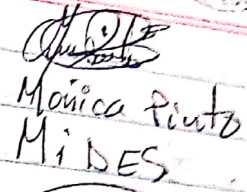 Mónica Pinto
MiDES